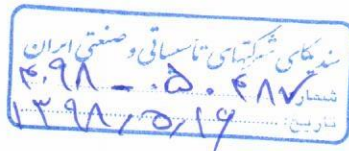 سندیکای شرکتهای تأسیساتی و صنعتی ایران
شماره: ۴۰۹۸ – ۵۰۴۸۷
تاریخ: ۱۳۹۸/۵/۱۶